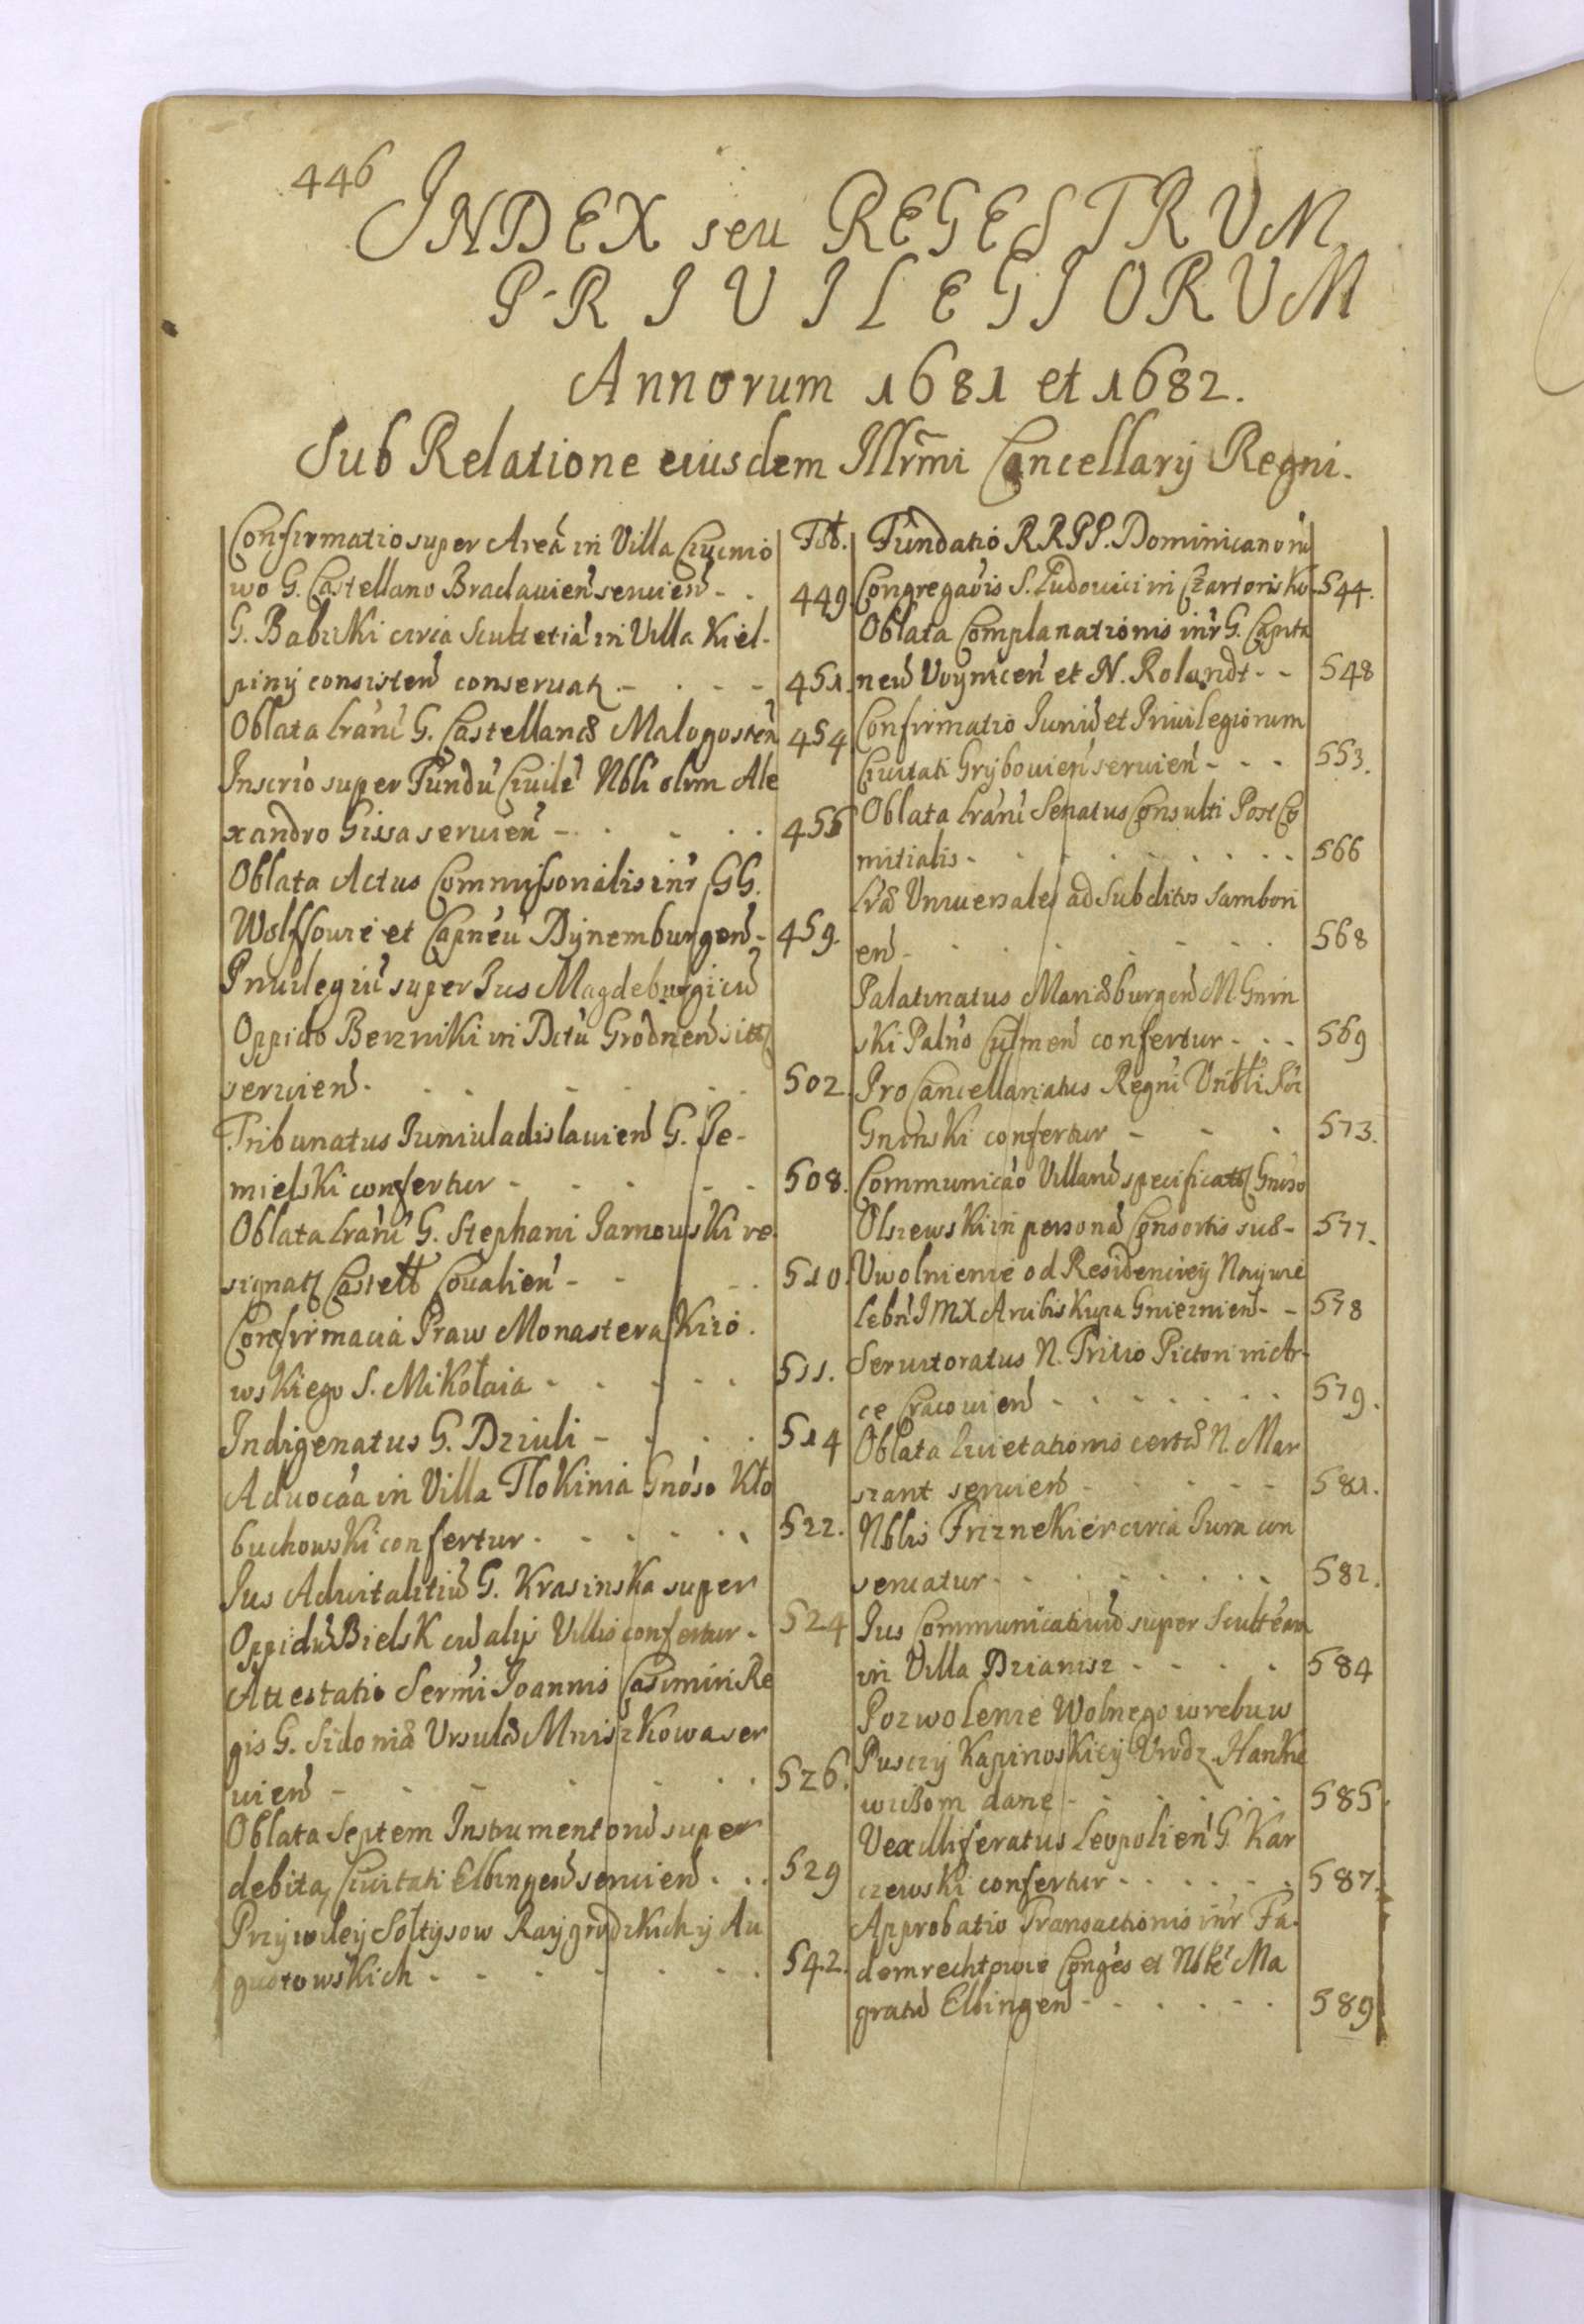 446
INDEX seu REGESTRVM
PRIVILEGIORVM
Annorum 1681 et 1682.
Sub Relatione eiusdem Illrmi Cancellarij Regni.
Confirmatio super Areã in Villa
wo G. Castellano Braclauien seruien - . 449
G. Babicki circa Scultetiã in Villa Kiel-
piny consisten conseruatr - . - - 451.
Oblata Lrarũ G. Castellanæ Malogosten 454
Inscrio super Fundũ Ciuilẽ Nbli olim Ale
xandro Gissa seruien - . . - . . 455
Oblata Actus Commissionalis intr GG.
Wolffowie et Capneũ Dynemburgen - 459.
Priuilegiũ super Jus Magdeburgicũ
Oppido Berzniki in Dctu Grodnen sitt
seruien - . . - . . . 502.
Tribunatus Juniuladislauien G. Je-
mielski confertur - - - - - - 508.
Oblata Lrarũ G. Stephani Jarnowski re
signat Castell Coualien - - - . 510.
Confirmacia Praw Monastera Kizo.
wskiego S. Mikołaia - - - - - 511.
Indigenatus G. Dziuli - - . . . 514
Aduocaa in Villa Tlokinia Gnoso Kło
buchowski confertur - - - - - - 522.
Jus Aduitalitiũ G. Krasinska super
Oppidũ Bielsk cũ alijs Villis confertur - 524
Attestatio Sermi Joannis Casimiri Re
gis G. Sidoniæ Vrsulæ Mniszkowa ser
uien - - - - - - 526.
Oblata Septem Instrumentorũ super
debita, Ciuitati Elbingen seruien . . . 529
Przywiley Sołtysow Raygrodzkich y Au
gustowskich - - - - - - - 542.
Fol. Fundatio RRPP. Dominicanorũ
Congregaõis S. Ludouici in Czartorisko - 544.
Oblata Complanationis intr G. Capita
neũ Voynicen et N. Rolandt - - 548
Confirmatio Juriũ et Priuilegiorum
Ciuitati Grybouien seruien - - - 553.
Oblata Lrarũ Senatus Consulti Post Co
mitialis - - - - - - - - 566
Lræ Vniuersales ad Subditos Sambori
en - - - - - - - 568
Palatinatus Mariæburgen M. Gnin
ski Palno Culmen confertur - - - 569
ProCancellariatus Regni
Gninski confertur - - - 573.
Communicao Villarũ specificatt Gnoso
Olszewski in personã Consortis suæ - 577.
Vwolnienie od Residenciey Naywie
lebn JMX Arcibiskupa Gnieznien - - 578
Seruitoratus N. Tritio Pictori in Ar-
ce Cracouien - - - - - - 579.
Oblata Quietationis certæ N. Mar
szant seruien - - - - - 581.
Nblis Friznekier circa Jura con
seruatur - - - - - - - 582.
Jus Communicatiuũ super Scultetiam
in Villa Dzianisz - - - - 584
Pozwolenie Wolnego wrębu w
Puszczy Kapinoskiey Vrodz. Hanke
wiczom dane - - - - - - 585.
Vexilliferatus Leopolien G. Kar
czewski confertur - - - - - - 587.
Approbatio Transactionis intr Fa-
demrechtowie Conges et Nble Ma
gratũ Elbingen - - - - - - 589